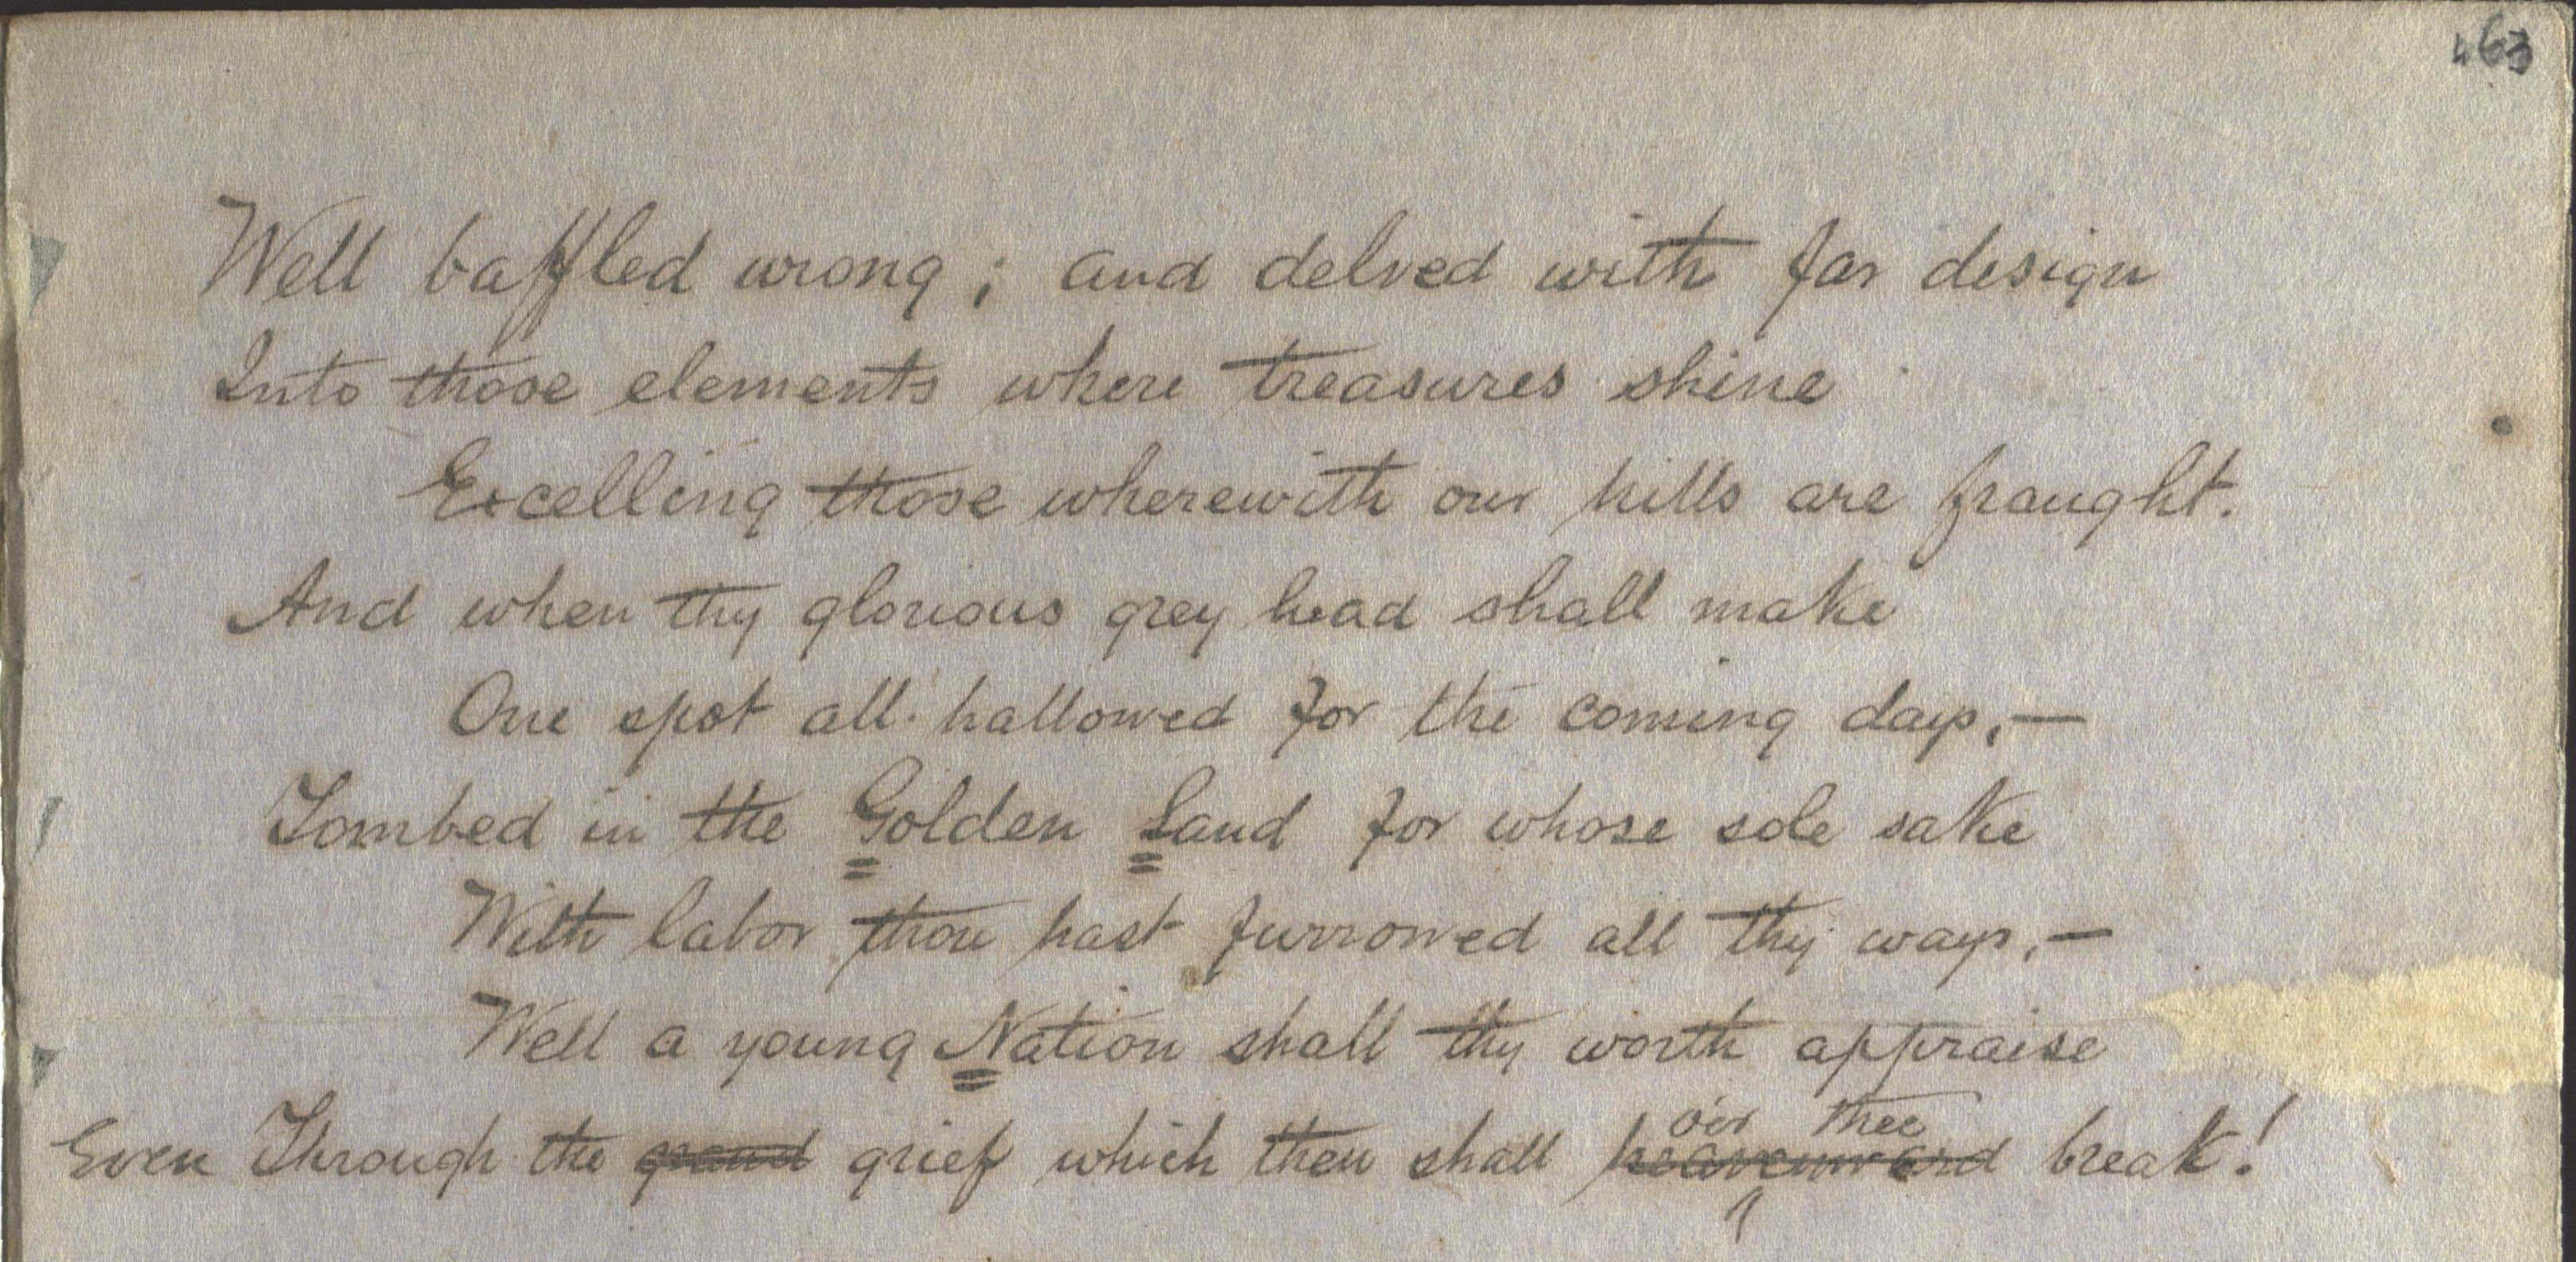 463
Well baffled wrong; and delved with far design
Into those elements where treasures shine
Excelling those wherewith our hills are fraught.
And when thy glorious grey head shall make
One spot all-hallowed for the coming days,—
Tombed in the Golden Land for whose sole sake
With labor thou hast furrowed all thy ways,—
Well a young Nation shall thy worth appraise
o'er thee
Even Through the grand grief which then shall heavenward break!